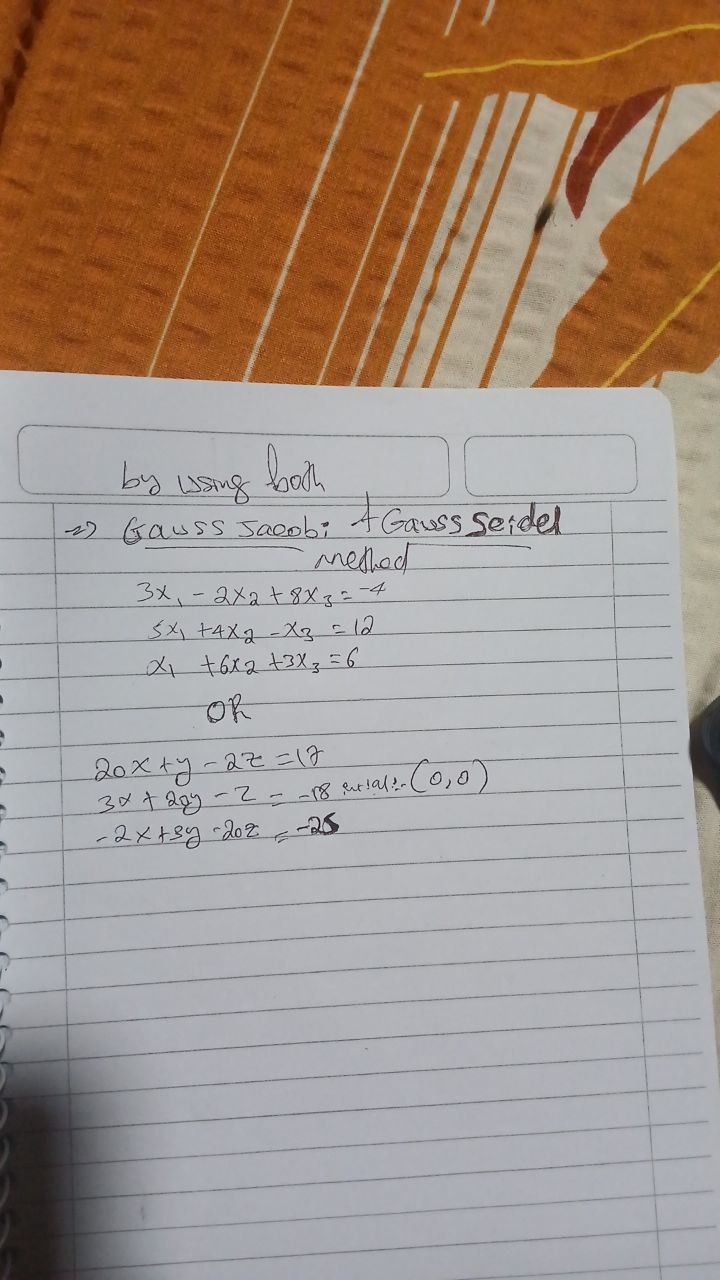 by using both
=> Gauss Jacobi + Gauss Seidel
method
3x₁ - 2x₂ + 8x₃ = -4
5x₁ + 4x₂ - x₃ = 12
x₁ + 6x₂ + 3x₃ = 6
OR
20x + y - 2z = 17
3x + 20y - z = -18 (0,0)
-2x + 3y - 20z = -25